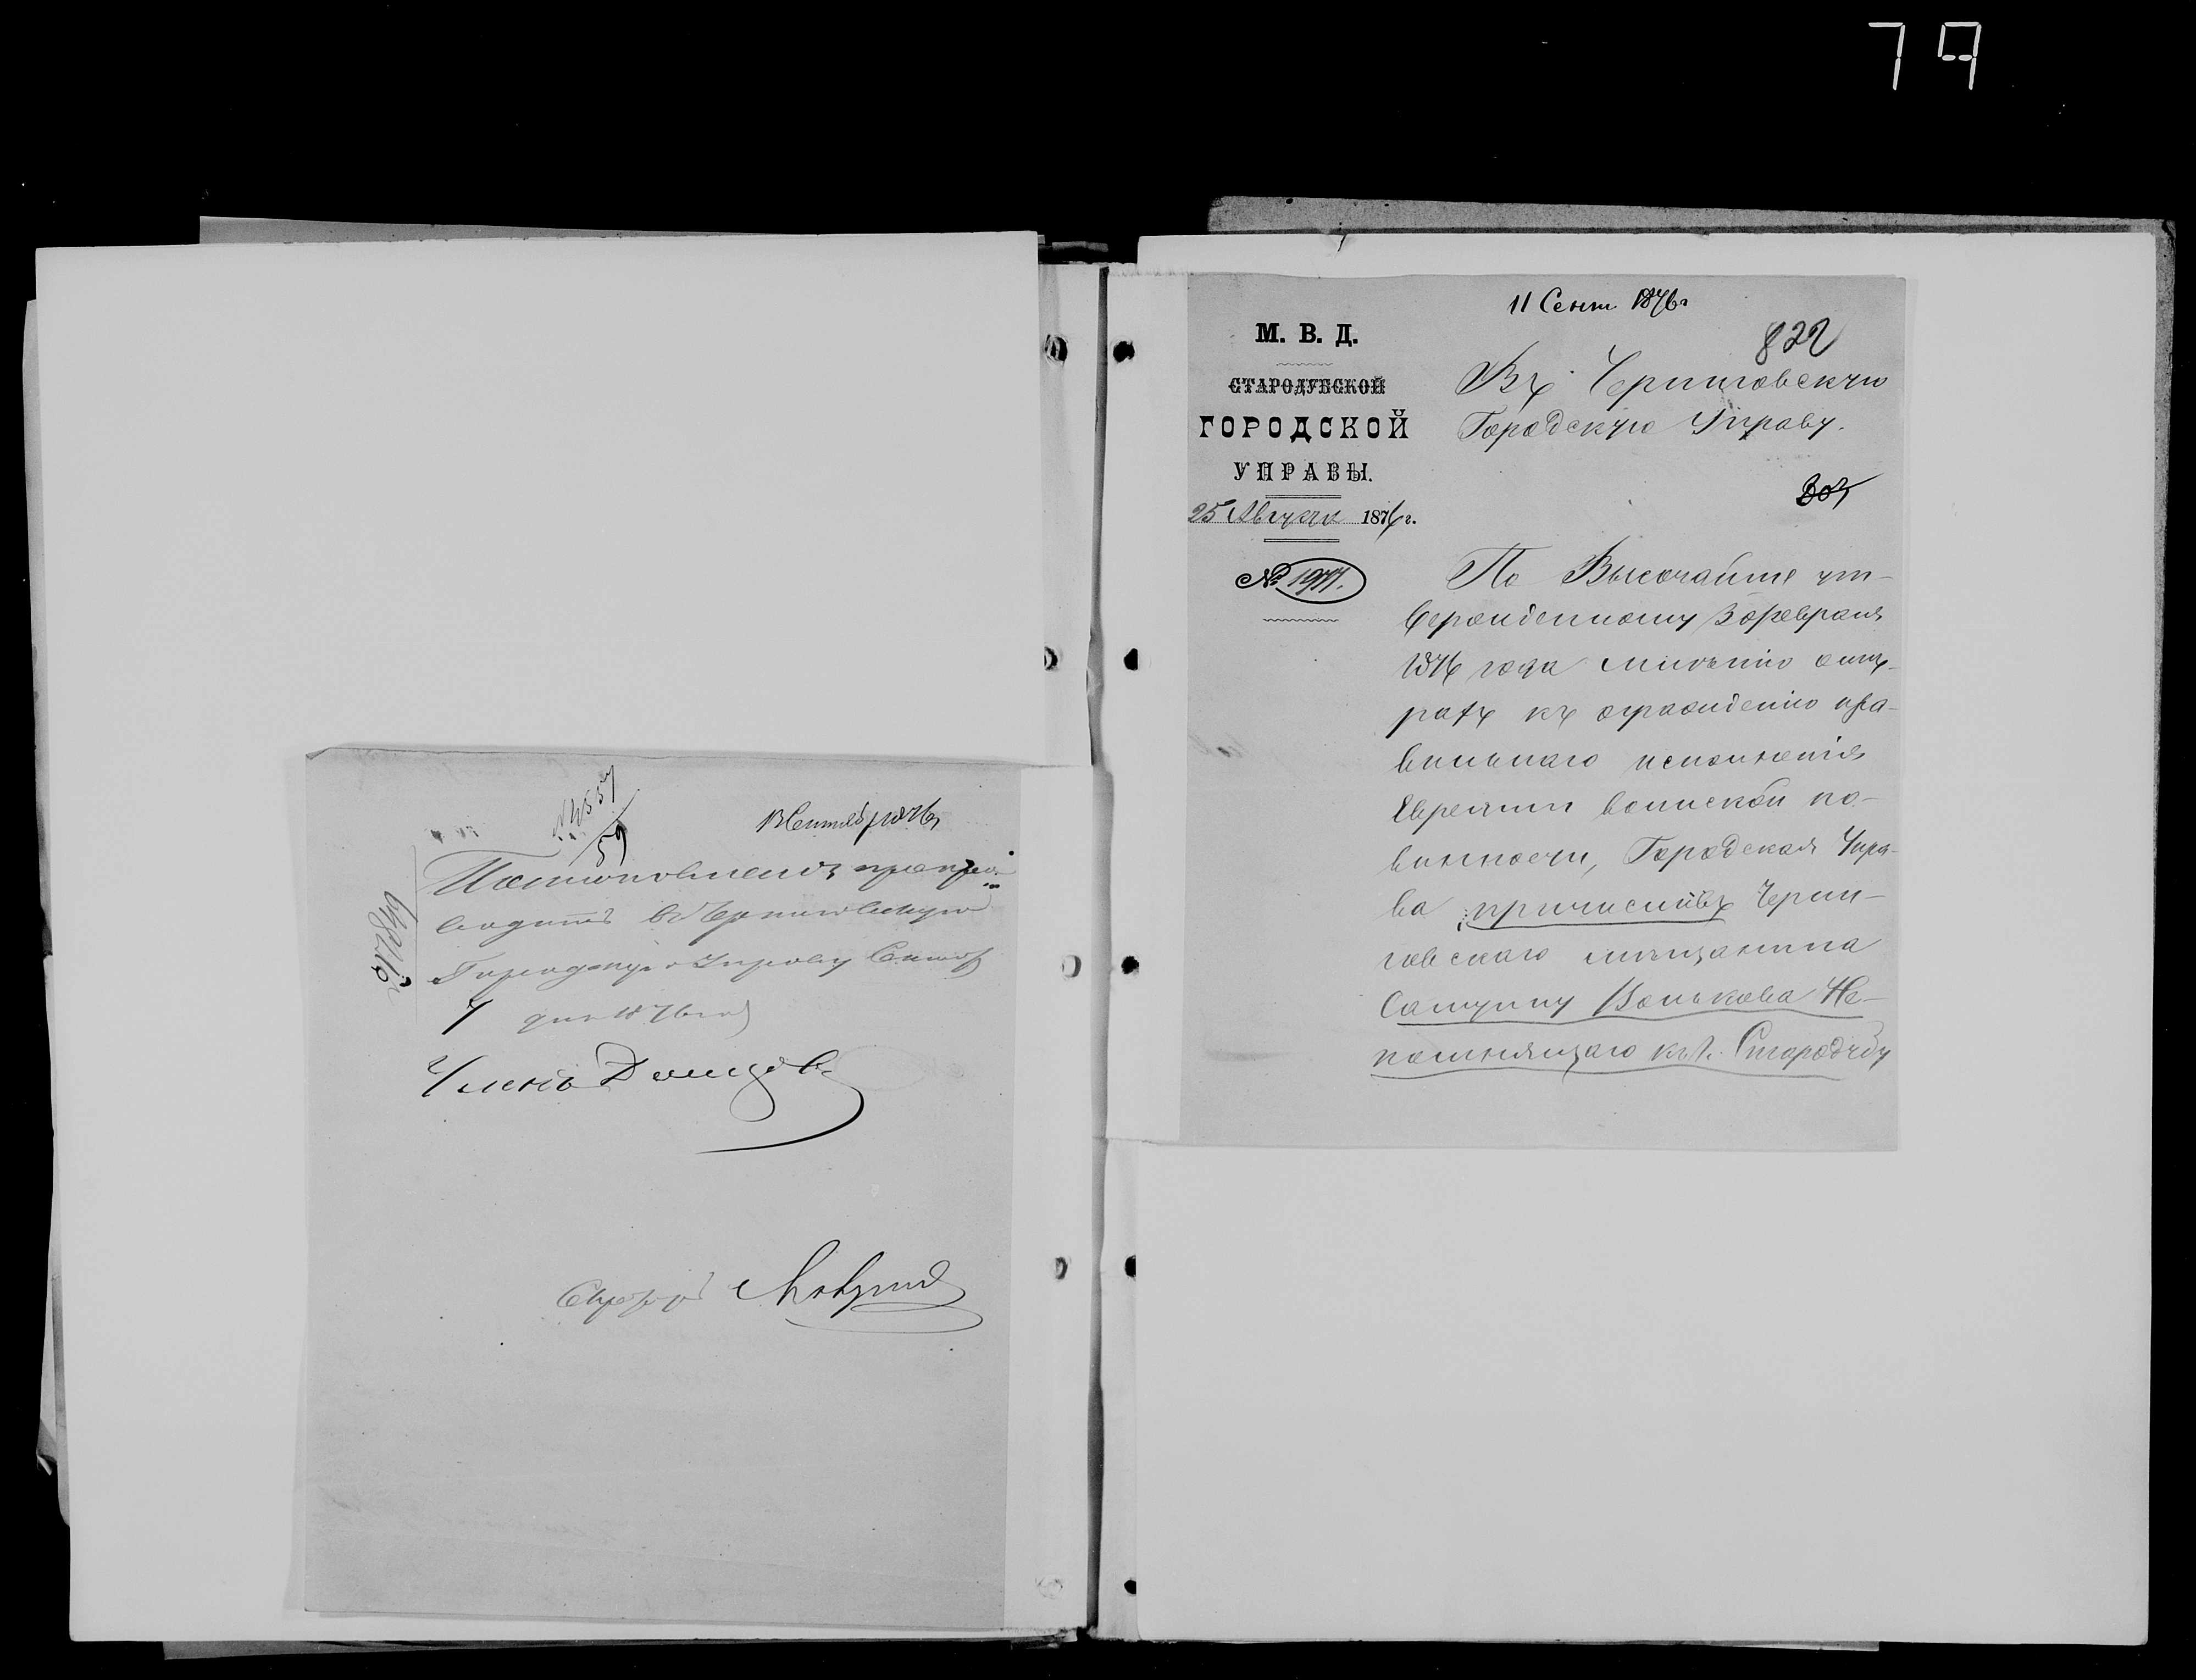 79
13 Сентября 1876
Препро-
водить въ Черниговскую
Городскую Управу Сентяб
7 дня 1876 год
Членъ
Секретарь
11 Сент 1876 г
822
М. В. Д.
СТАРОДУБСКОЙ
ГОРОДСКОЙ
УПРАВЫ.
25 Августа 1876 г.
№ 1977.
Въ Черниговскую
Городскую Управу.
По Высочайше ут-
вержденному 3 Февраля
1876 года мнѣнію о мѣ-
рахъ къ огражденію пра-
вильнаго исполненія
Евреями воинской по-
винности, Городская Упра-
ва причисливъ Черни-
говскаго мѣщанина
Не-
помнящаго къ г. Стародубу